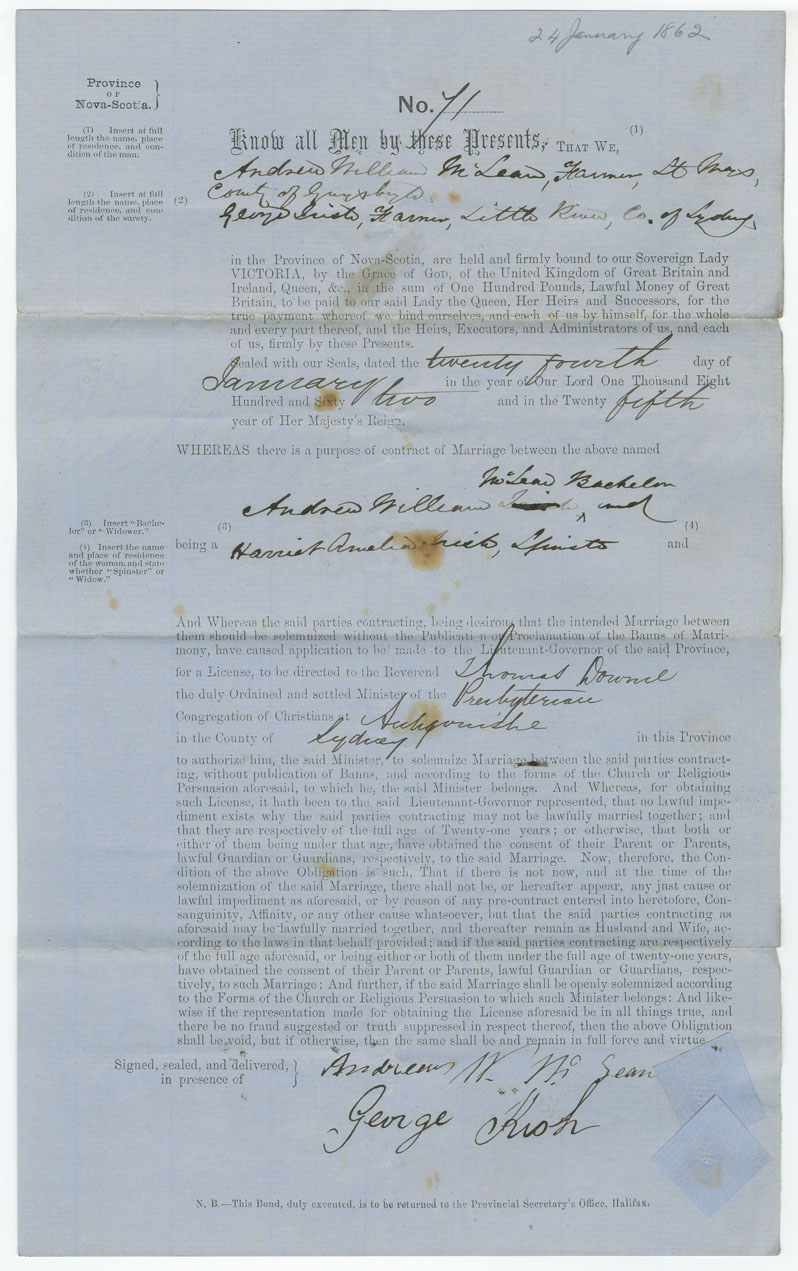 24 January 1862
Province
OF
Nova-Scotia.
No. 71
(1) Insert at full
length the name, place
of residence, and con-
dition of the man.
Know all Men by these Presents, THAT WE, (1)
Andrew William McLean, Farmer, St Marys,
County of Guysboro
(2) Insert at full
length the name, place
of residence, and con-
dition of the surety.
(2)
George Irish, Farmer, Little River, Co. of Sydney
in the Province of Nova-Scotia, are held and firmly bound to our Sovereign Lady
VICTORIA, by the Grace of GOD, of the United Kingdom of Great Britain and
Ireland, Queen, &c., in the sum of One Hundred Pounds, Lawful Money of Great
Britain, to be paid to our said Lady the Queen, Her Heirs and Successors, for the
true payment whereof we bind ourselves, and each of us by himself, for the whole
and every part thereof, and the Heirs, Executors, and Administrators of us, and each
of us, firmly by these Presents.
Sealed with our Seals, dated the twenty fourth day of
January in the year of Our Lord One Thousand Eight
Hundred and Sixty two and in the Twenty fifth
year of Her Majesty's Reign.
WHEREAS there is a purpose of contract of Marriage between the above named
McLean Bachelor
Andrew William and
(3) Insert "Bache-
lor" or "Widower."
(3)
(4)
being a Harriet Amelia Irish, Spinster and
(4) Insert the name
and place of residence
of the woman, and state
whether "Spinster" or
"Widow."
And Whereas the said parties contracting, being desirous that the intended Marriage between
them should be solemnized without the Publication or Proclamation of the Banns of Matri-
mony, have caused application to be made to the Lieutenant-Governor of the said Province,
for a License, to be directed to the Reverend Thomas Downie
the duly Ordained and settled Minister of the Presbyterian
Congregation of Christians at Antigonishe
in the County of Sydney in this Province
to authorize him, the said Minister, to solemnize Marriage between the said parties contract-
ing, without publication of Banns, and according to the forms of the Church or Religious
Persuasion aforesaid, to which he, the said Minister belongs. And Whereas, for obtaining
such License, it hath been to the said Lieutenant-Governor represented, that no lawful impe-
diment exists why the said parties contracting may not be lawfully married together; and
that they are respectively of the full age of Twenty-one years; or otherwise, that both or
either of them being under that age, have obtained the consent of their Parent or Parents,
lawful Guardian or Guardians, respectively, to the said Marriage. Now, therefore, the Con-
dition of the above Obligation is such, That if there is not now, and at the time of the
solemnization of the said Marriage, there shall not be, or hereafter appear, any just cause or
lawful impediment as aforesaid, or by reason of any pre-contract entered into heretofore, Con-
sanguinity, Affinity, or any other cause whatsoever, but that the said parties contracting as
aforesaid may be lawfully married together, and thereafter remain as Husband and Wife, ac-
cording to the laws in that behalf provided; and if the said parties contracting are respectively
of the full age aforesaid, or being either or both of them under the full age of twenty-one years,
have obtained the consent of their Parent or Parents, lawful Guardian or Guardians, respec-
tively, to such Marriage: And further, if the said Marriage shall be openly solemnized according
to the Forms of the Church or Religious Persuasion to which such Minister belongs: And like-
wise if the representation made for obtaining the License aforesaid be in all things true, and
there be no fraud suggested or truth suppressed in respect thereof, then the above Obligation
shall be void, but if otherwise, then the same shall be and remain in full force and virtue.
Signed, sealed, and delivered,
in presence of
Andrew W. McLean
George Irish
N. B.—This Bond, duly executed, is to be returned to the Provincial Secretary's Office, Halifax.